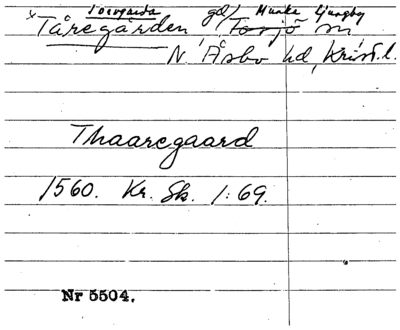 Torvgarda Munka Ljungby
× Tåregården gd/ Torjö sn
N. Åsbo hd, Krist. l.
Thaaregaard
1560. Kr. Sk. 1:69.
Nr 5504.